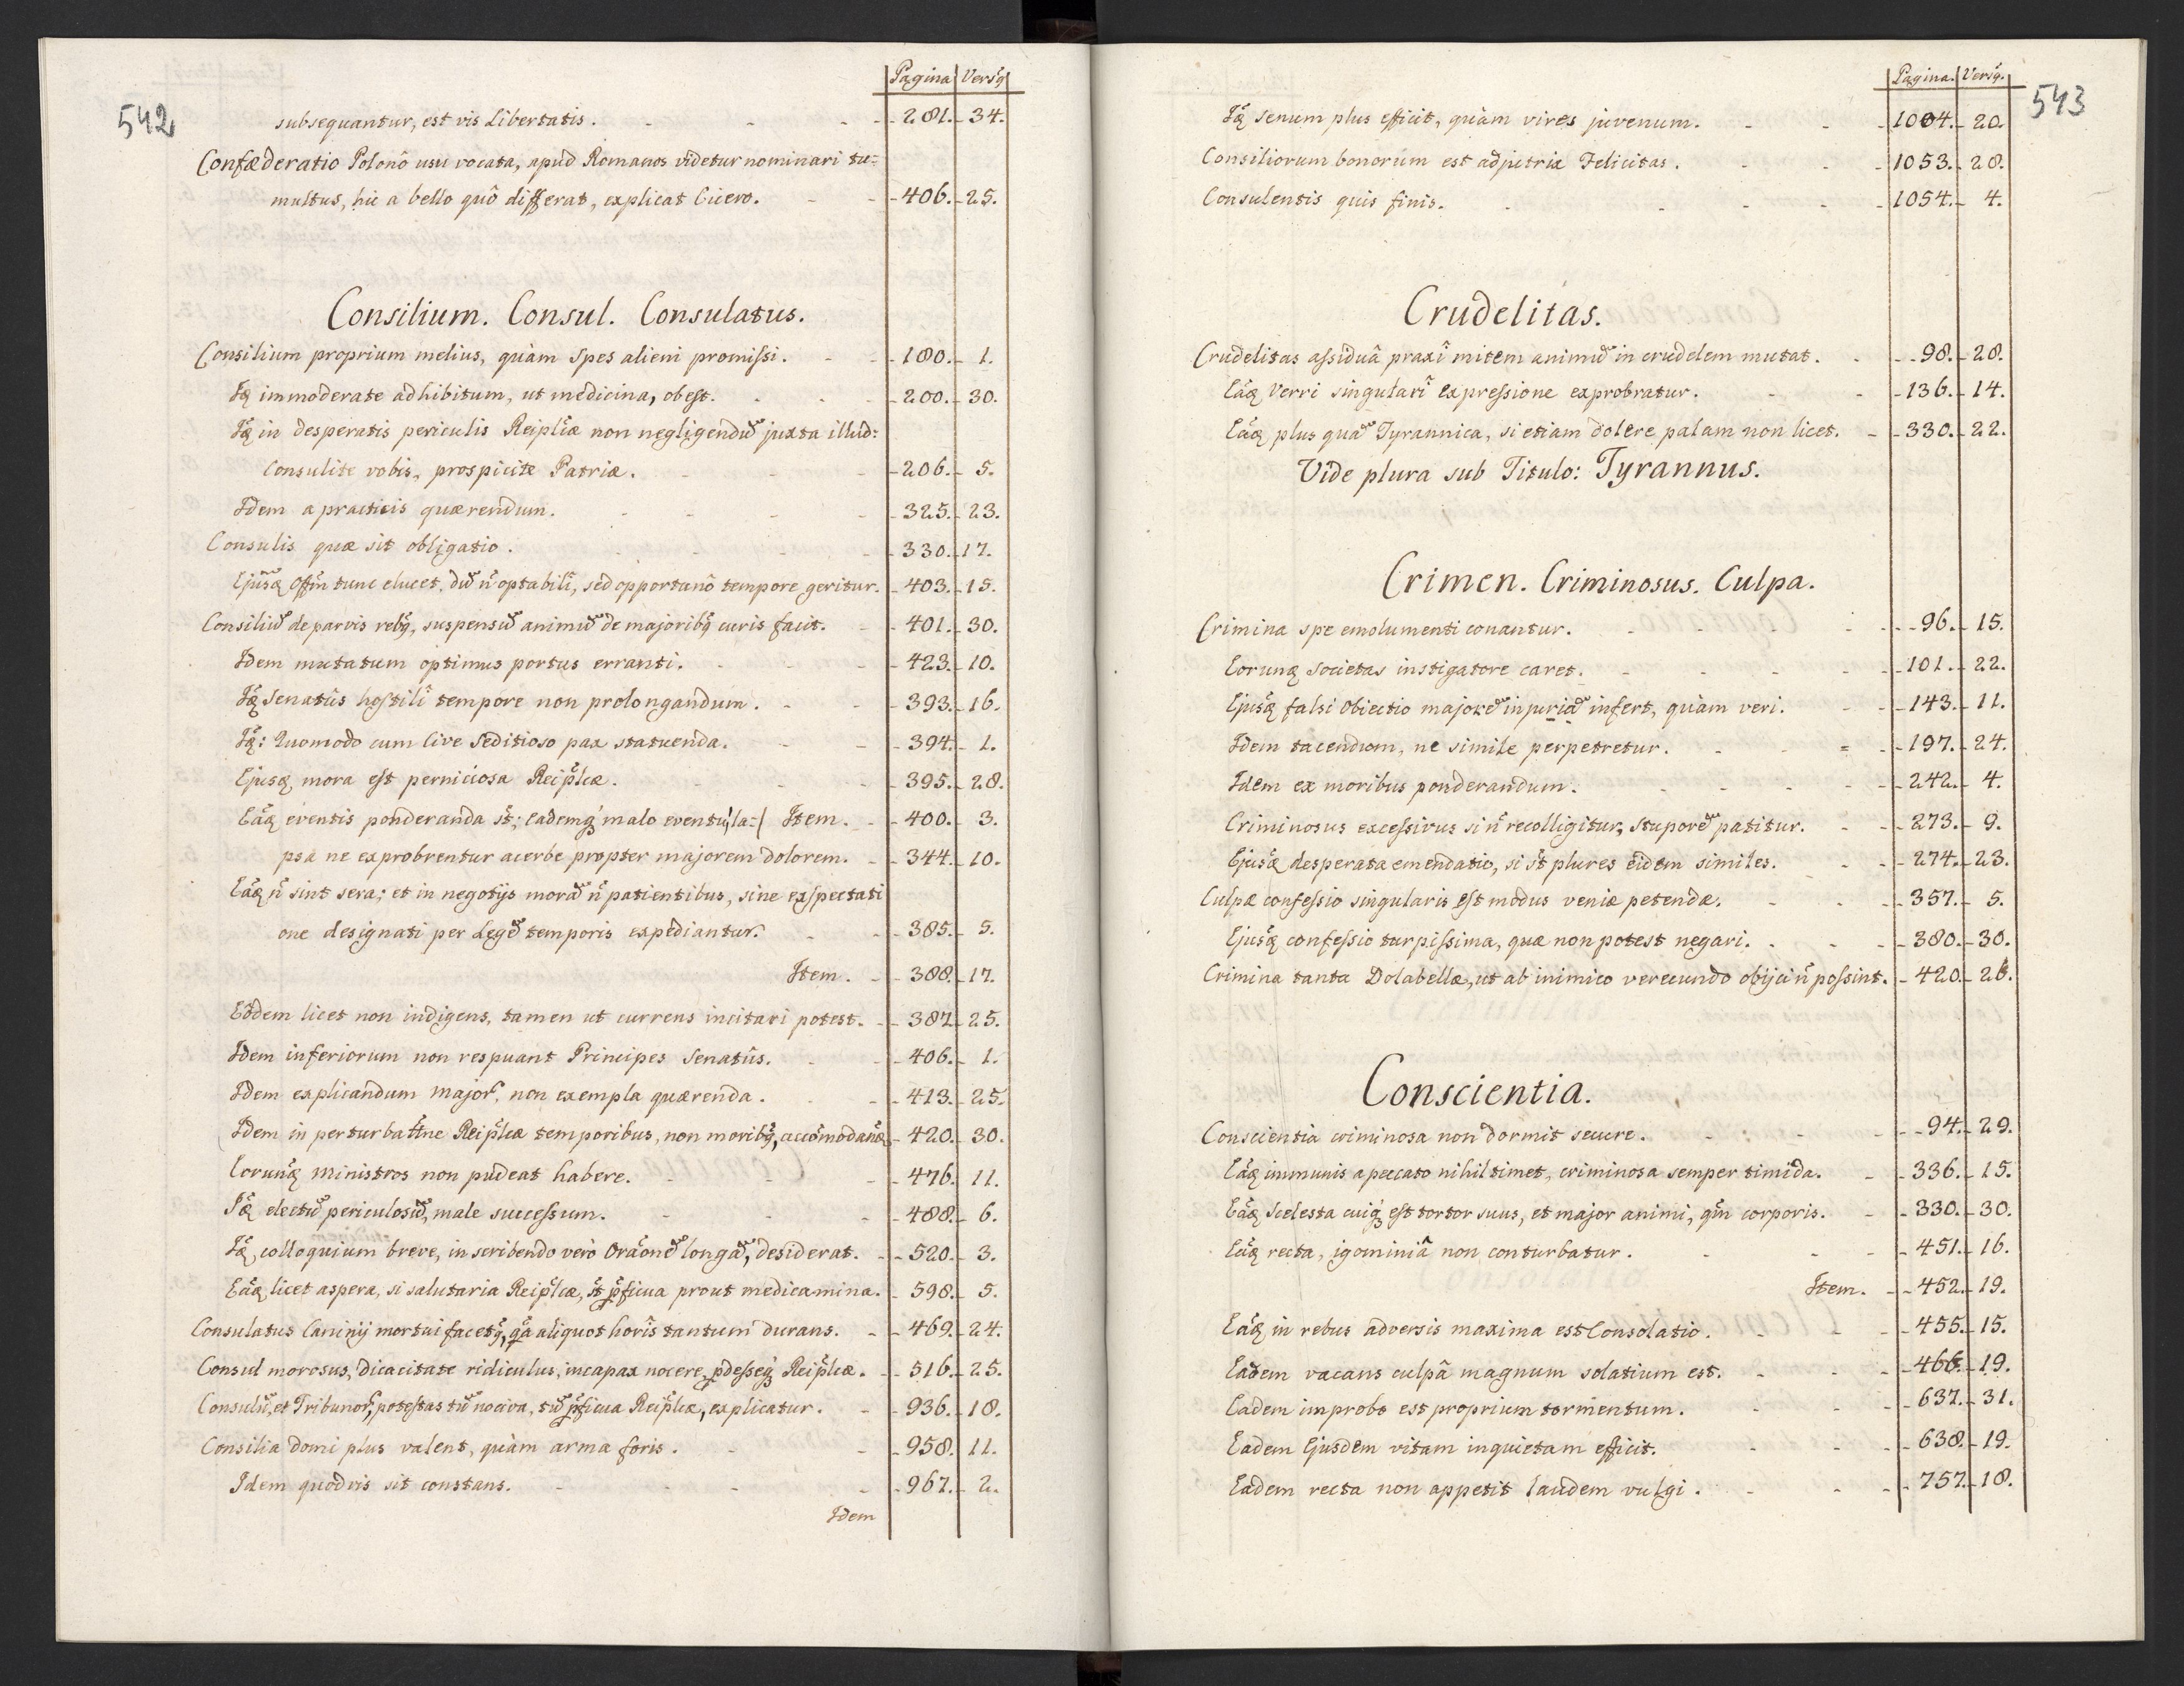 542
Pagina Versq
subsequantur, est vis Libertatis. 281. 34.
Confæderatio Polonô usu vocata, apud Romanos videtur nominari tu=
multus, hic a bello quô differat, explicat Cicero. 406. 25.
Consilium. Consul. Consulatus.
Consilium proprium melius, quàm spes alieni promissi. 180. 1.
Idq immoderate adhibitum, ut medicina, obest. 200. 30.
Idq in desperatis periculis Reiplicæ non negligendũ juxta illud:
Consulite vobis, prospicite Patriæ. 206. 5.
Idem a practicis quærendum. 325. 23.
Consulis quæ sit obligatio. 330. 17.
Ejusq offm tunc elucet, dũ ñ optabilî, sed opportunô tempore geritur. 403. 15.
Consiliũ de parvis rebq, suspensũ animũ de majoribq curis facit. 401. 30.
Idem mutatum optimus portus erranti. 423. 10.
Idq Senatûs hostilî tempore non prolongandum. 393. 16.
Idq: Quomodo cum Cive Seditioso pax statuenda. 394. 1.
Ejusq mora est perniciosa Reiplcæ. 395. 28.
Eaq eventis ponderanda st; eademq malo eventu, la=/ Item. 400. 3.
psa ne exprobrentur acerbe propter majorem dolorem. 344. 10.
Eaq ñ sint sera; et in negotijs morã ñ patientibus, sine exspectati
one designati per Legẽ temporis expediantur. 385. 5.
Item. 388. 17.
Eôdem licet non indigens, tamen ut currens incitari potest. 387. 25.
Idem inferiorum non respuant Principes Senatûs. 406. 1.
Idem explicandum major, non exempla quærenda. 413. 25.
Idem in perturbatne Reiplcæ temporibus, non moribq, accõmodanq 420. 30.
Eorunq ministros non pudeat habere. 476. 11.
Idq electũ periculosũ, male successum. 488. 6.
Idq colloquium breve, in scribendo verò Oraõnẽ longã, desiderat. 520. 3.
Eaq licet aspera, si salutaria Reiplcæ, st pficua prout medicamina. 598. 5.
Consulatus Caninij mortui facetq, qa aliquot horîs tantum durans. 469. 24.
Consul morosus, dicacitate ridiculus, incapax nocere, pdesseq Reiplcæ. 516. 25.
Consulũ, et Tribunor, potestas tũ nociva, tũ pficua Reiplcæ, explicatur. 936. 18.
Consilia domi plus valent, quàm arma foris. 958. 11.
Idem quodvis sit constans. 967. 2.
Idem
Pagina. Versq.
543
Idq Senum plus efficit, quàm vires juvenum. 1004. 20.
Consiliorum bonorum est adjutrix Felicitas. 1053. 28.
Consulentis quis finis. 1054. 4.
Crudelitas.
Crudelitas assiduâ praxî mitem animũ in crudelem mutat. 98. 28.
Eaq Verri singularî expressione exprobratur. 136. 14.
Eaq plus quã Tyrannica, si etiam dolere palam non licet. 330. 22.
Vide plura sub Titulo: Tyrannus.
Crimen. Criminosus. Culpa.
Crimina spe emolumenti conantur. 96. 15.
Eorunq societas instigatore caret. 101. 22.
Ejusq falsi Obiectio majorẽ injuriã infert, quàm veri. 143. 11.
Idem tacendum, ne simile perpetretur. 197. 24.
Idem ex moribus ponderandum. 242. 4.
Criminosus excessivus si ñ recolligitur, stuporẽ patitur. 273. 9.
Ejusq desperata emendatio, si st plures eidem similes. 274. 23.
Culpæ confessio singularis est modus veniæ petendæ. 357. 5.
Ejusq confessio turpissima, quæ non potest negari. 380. 30.
Crimina tanta Dolabellæ, ut ab inimico verecundo obijci ñ possint. 420. 26.
Conscientia.
Conscientia criminosa non dormit secure. 94. 29.
Eaq immunis a peccato nihil timet, criminosa semper timida. 336. 15.
Eaq scelesta cuiq est tortor suus, et major animi, qm corporis. 330. 30.
Eaq recta, igominiâ non conturbatur. 451. 16.
Item. 452. 19.
Eaq in rebus adversis maxima est Consolatio. 455. 15.
Eadem vacans culpâ magnum solatium est. 466. 19.
Eadem improbo est proprium tormentum. 637. 31.
Eadem Ejusdem vitam inquietam efficit. 638. 19.
Eadem recta non appetit laudem vulgi. 757. 18.